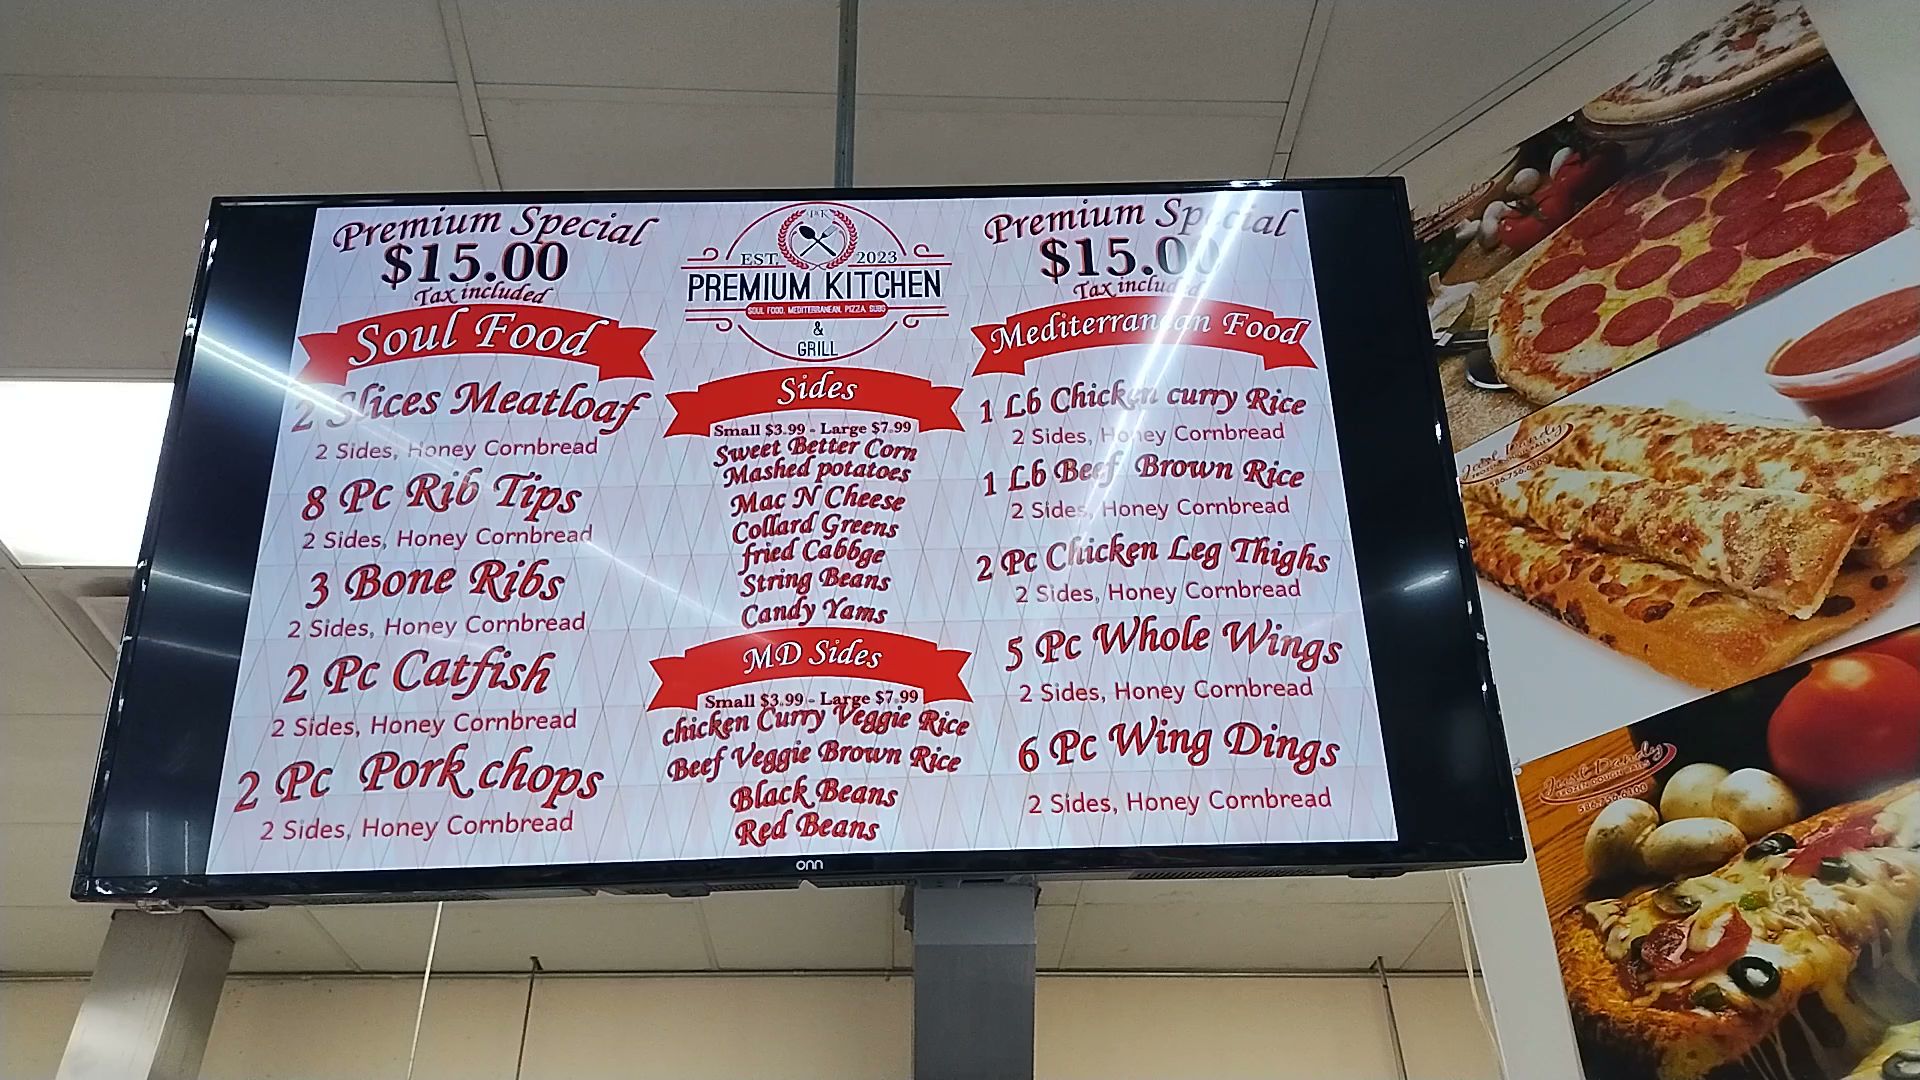 Premium Special
$15.00
Tax included
Soul Food
2 Slices Meatloaf
2 Sides, Honey Cornbread
8 Pc Rib Tips
2 Sides, Honey Cornbread
3 Bone Ribs
2 Sides, Honey Cornbread
2 Pc Catfish
2 Sides, Honey Cornbread
2 Pc Pork chops
2 Sides, Honey Cornbread
P K
EST. 2023
PREMIUM KITCHEN
SOUL FOOD, MEDITERRANEAN, PIZZA, SUBS
&
GRILL
Sides
Small $3.99 - Large $7.99
Sweet Better Corn
Mashed potatoes
Mac N Cheese
Collard Greens
fried Cabbge
String Beans
Candy Yams
MD Sides
Small $3.99 - Large $7.99
chicken Curry Veggie Rice
Beef Veggie Brown Rice
Black Beans
Red Beans
Premium Special
$15.00
Tax included
Mediterranean Food
1 Lb Chicken curry Rice
2 Sides, Honey Cornbread
1 Lb Beef Brown Rice
2 Sides, Honey Cornbread
2 Pc Chicken Leg Thighs
2 Sides, Honey Cornbread
5 Pc Whole Wings
2 Sides, Honey Cornbread
6 Pc Wing Dings
2 Sides, Honey Cornbread
onn
Just Dandy
FROZEN DOUGH BALLS
586.756.6100
Just Dandy
FROZEN DOUGH BALLS
586.756.6100